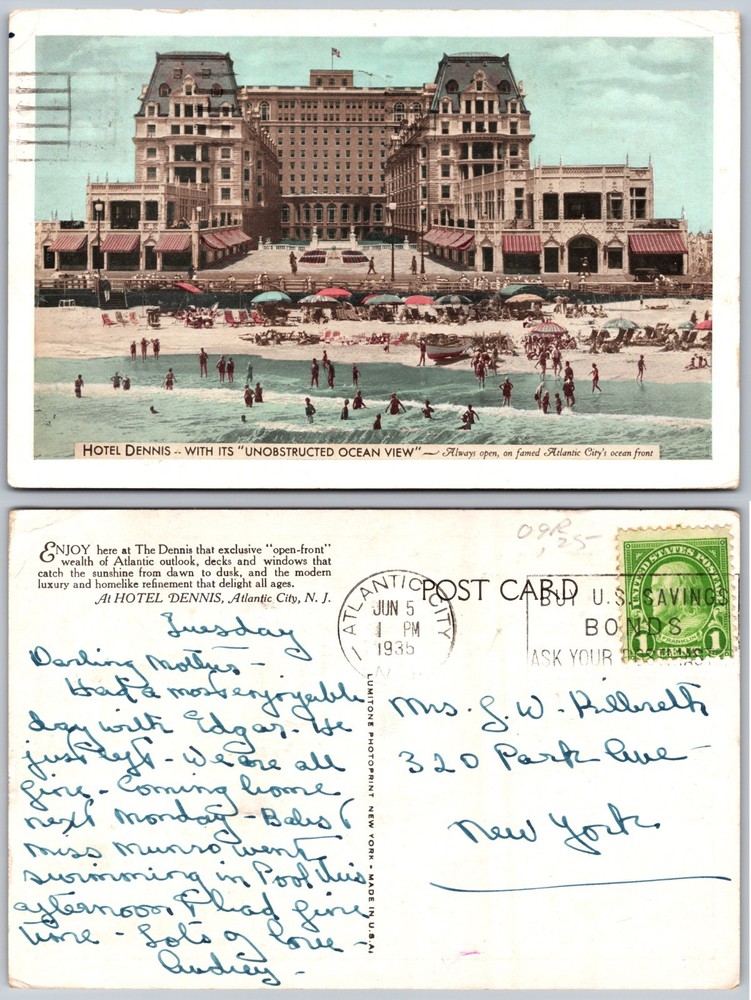 HOTEL DENNIS -- WITH ITS "UNOBSTRUCTED OCEAN VIEW" — Always open, on famed Atlantic City's ocean front
ENJOY here at The Dennis that exclusive "open-front"
wealth of Atlantic outlook, decks and windows that
catch the sunshine from dawn to dusk, and the modern
luxury and homelike refinement that delight all ages.
At HOTEL DENNIS, Atlantic City, N. J.
POST CARD
ATLANTIC CITY
JUN 5
1 PM
1935
N.J.
BUY U.S. SAVINGS
BONDS
ASK YOUR POSTMASTER
UNITED STATES POSTAGE
FRANKLIN
1 CENT 1
LUMITONE PHOTOPRINT NEW YORK - MADE IN U.S.A.
Tuesday
Darling Mother -
Had a most enjoyable
day with Edgar - He
just left - We are all
fine - Coming home
next Monday - Babs &
Miss Munro went
swimming in Pool this
afternoon & had fine
time - Lots of love -
Audrey -
Mrs. G. W.
320 Park Ave -
New York